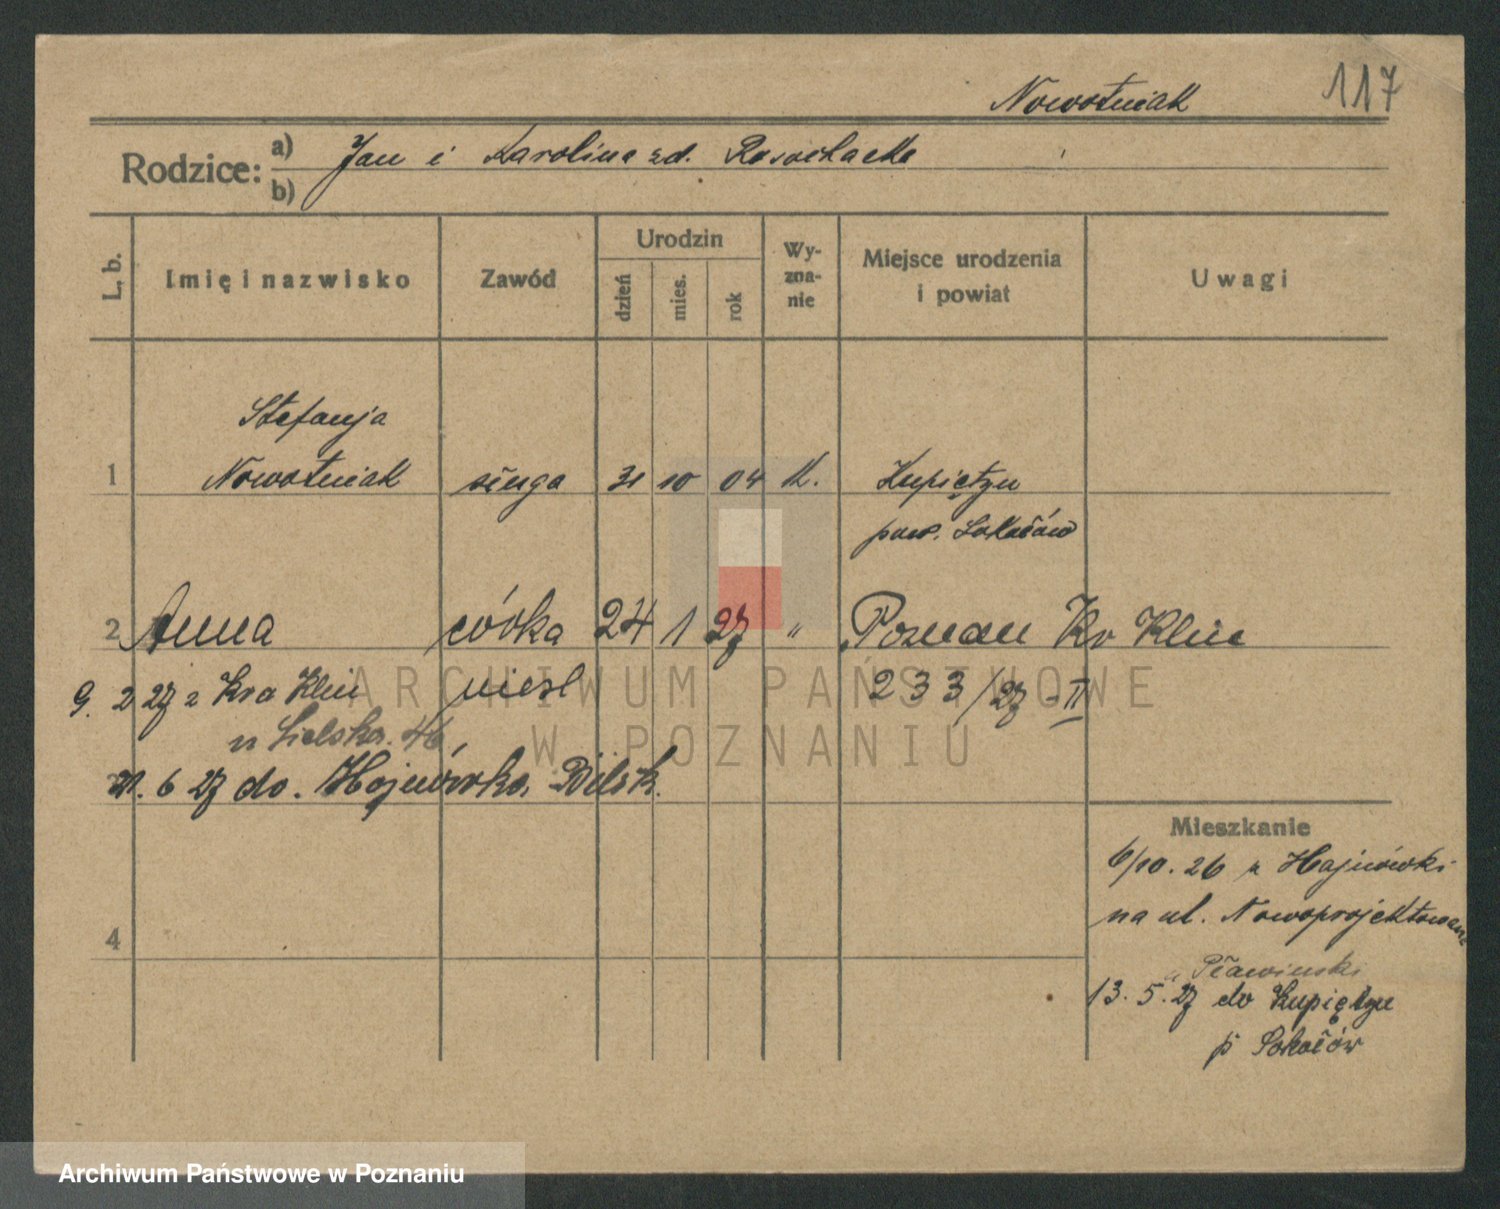 Nowotniak 117
Rodzice: a) Jan i Karolina zd. Rosochacka
b)
L. b. Imię i nazwisko Zawód Urodzin dzień mies. rok Wyznanie Miejsce urodzenia i powiat Uwagi
Stefanja
1 Nowotniak sługa 31 10 04 K. Kupiętyn
pow. Sokołów
2 Anna córka 24 1 27 " Poznań Kr Klin
9. 2 27 z Kra Klin nieśl 233/27 - II
u Sielska. 46
21. 6 27 do. Hajnówka, Bielsk.
4
Mieszkanie
6/10. 26 z Hajnówki
na ul. Nowoprojektowana
u Pławinski
13. 5. 27 do Kupiętyn
p Sokołów
ARCHIWUM PAŃSTWOWE
W POZNANIU
Archiwum Państwowe w Poznaniu